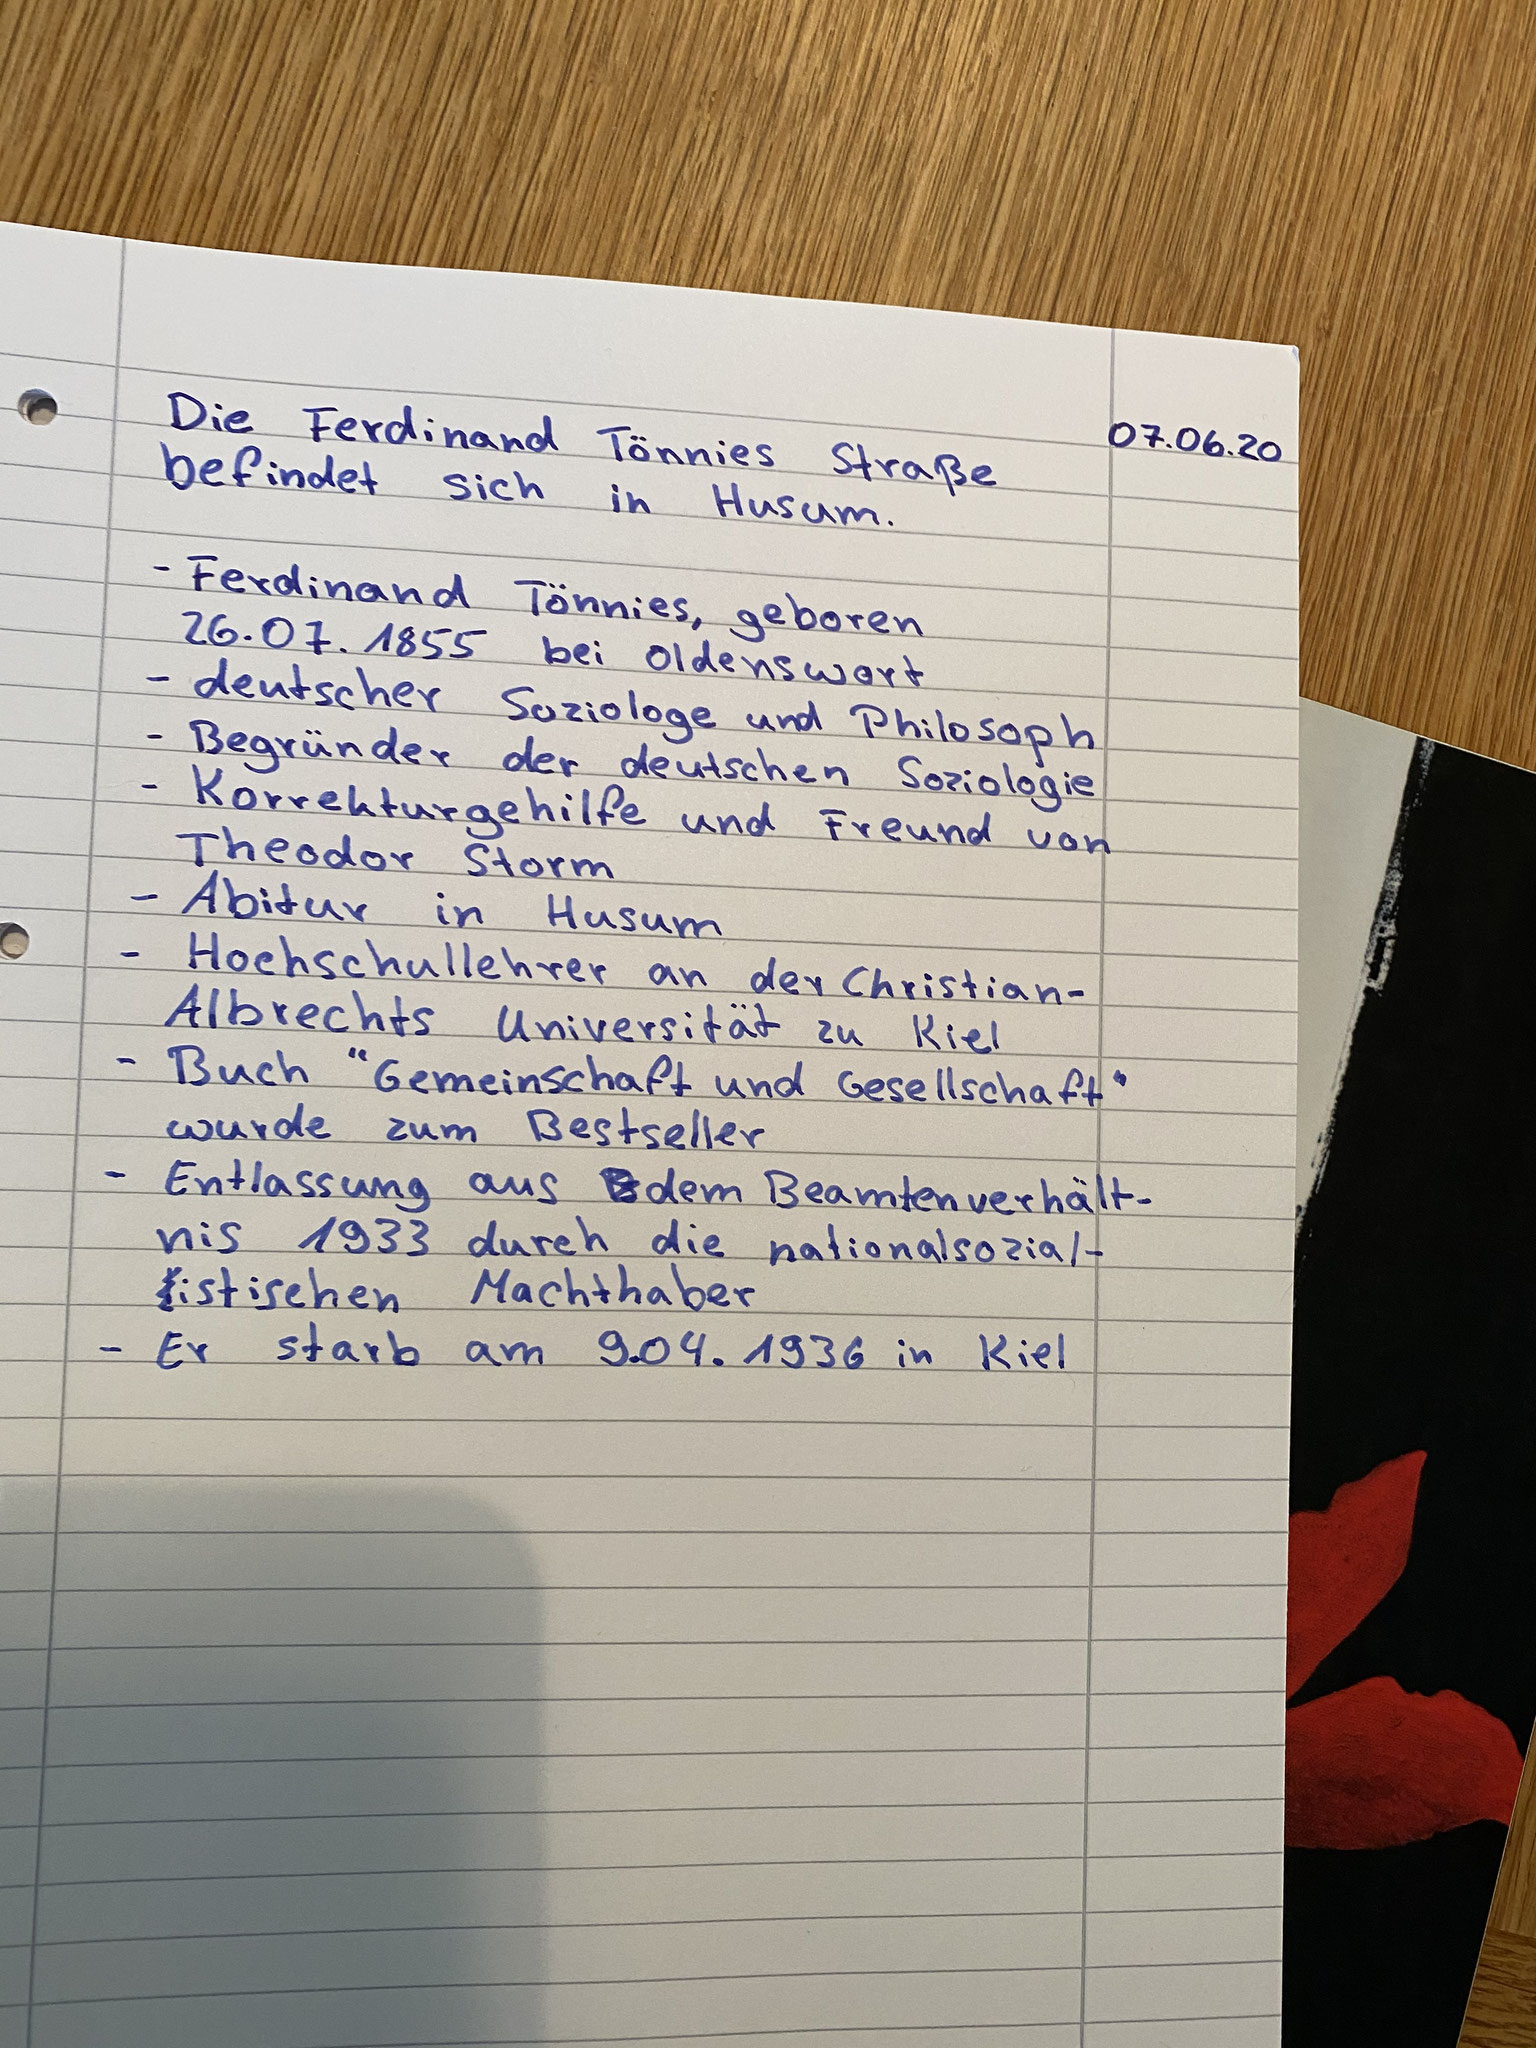 Die Ferdinand Tönnies Straße 07.06.20
befindet sich in Husum.
- Ferdinand Tönnies, geboren
26.07.1855 bei Oldenswort
- deutscher Soziologe und Philosoph
- Begründer der deutschen Soziologie
- Korrekturgehilfe und Freund von
Theodor Storm
- Abitur in Husum
- Hochschullehrer an der Christian-
Albrechts Universität zu Kiel
- Buch "Gemeinschaft und Gesellschaft"
wurde zum Bestseller
- Entlassung aus dem Beamtenverhält-
nis 1933 durch die nationalsozial-
istischen Machthaber
- Er starb am 9.04.1936 in Kiel